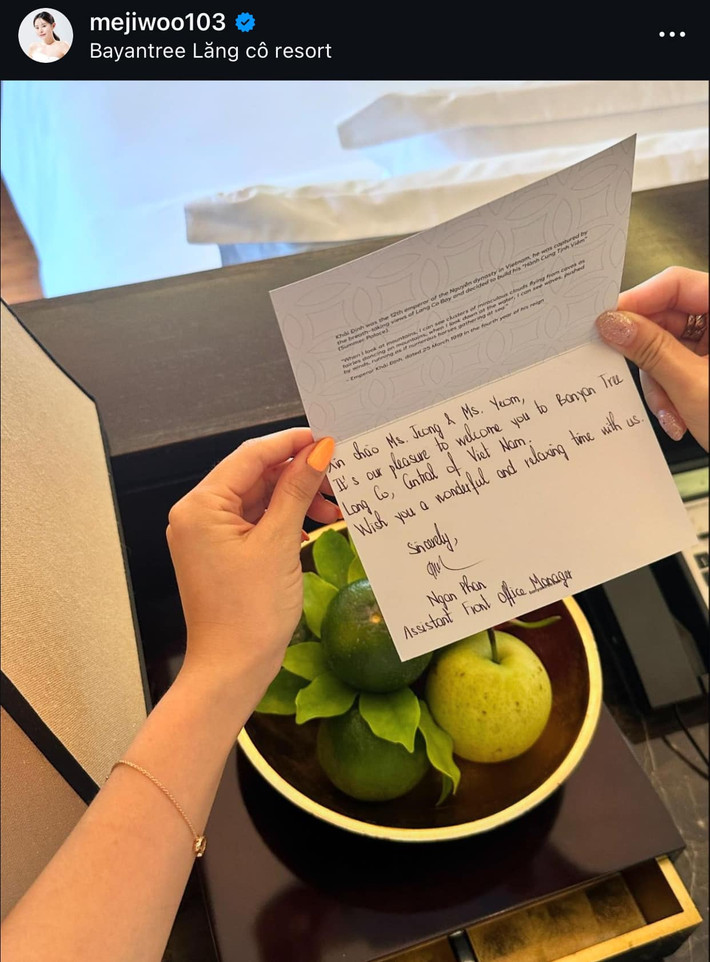 mejiwoo103
Bayantree Lăng cô resort
Khải Định was the 12th emperor of the Nguyễn dynasty in Vietnam, he was captured by
the breath-taking views of Lang Co Bay and decided to build his "Hành Cung Tịnh Viêm"
(Summer Palace).
"When I look at mountains, I can see clusters of miraculous clouds flying from caves as
fairies dancing on mountains; when I look down at the water, I can see waves, pushed
by winds, running as if numerous horses gathering at sea"
- Emperor Khải Định, dated 25 March 1919 in the fourth year of his reign
Xin chào Ms. Jeong & Ms. Yeom,
It's our pleasure to welcome you to Banyan Tree
Lang Co, Central of Viet Nam.
Wish you a wonderful and relaxing time with us.
Sincerely,
Ngan Phan
Assistant Front Office Manager